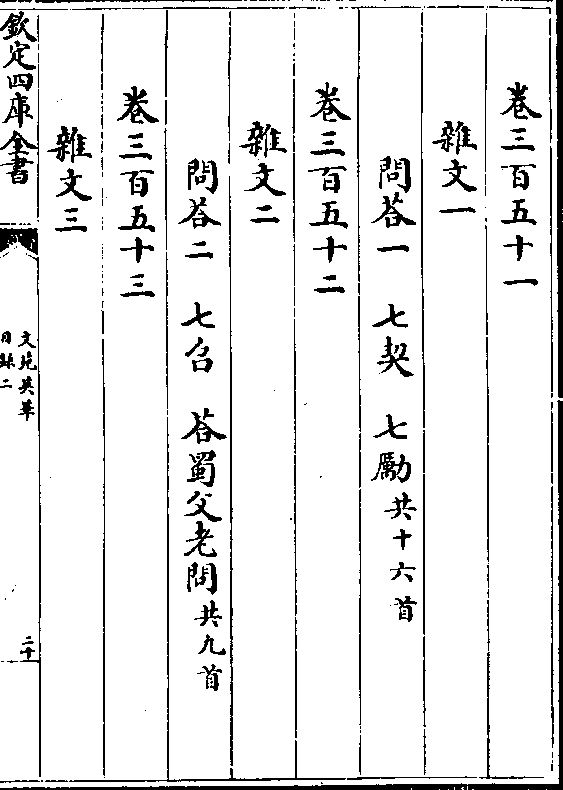 卷三百五十一
雜文一
問荅一　七契　七勵共十六首
卷三百五十二
雜文二
問荅二　七召　荅蜀父老問共九首
卷三百五十三
雜文三
欽定四庫全書
文苑英華
目錄二
二十